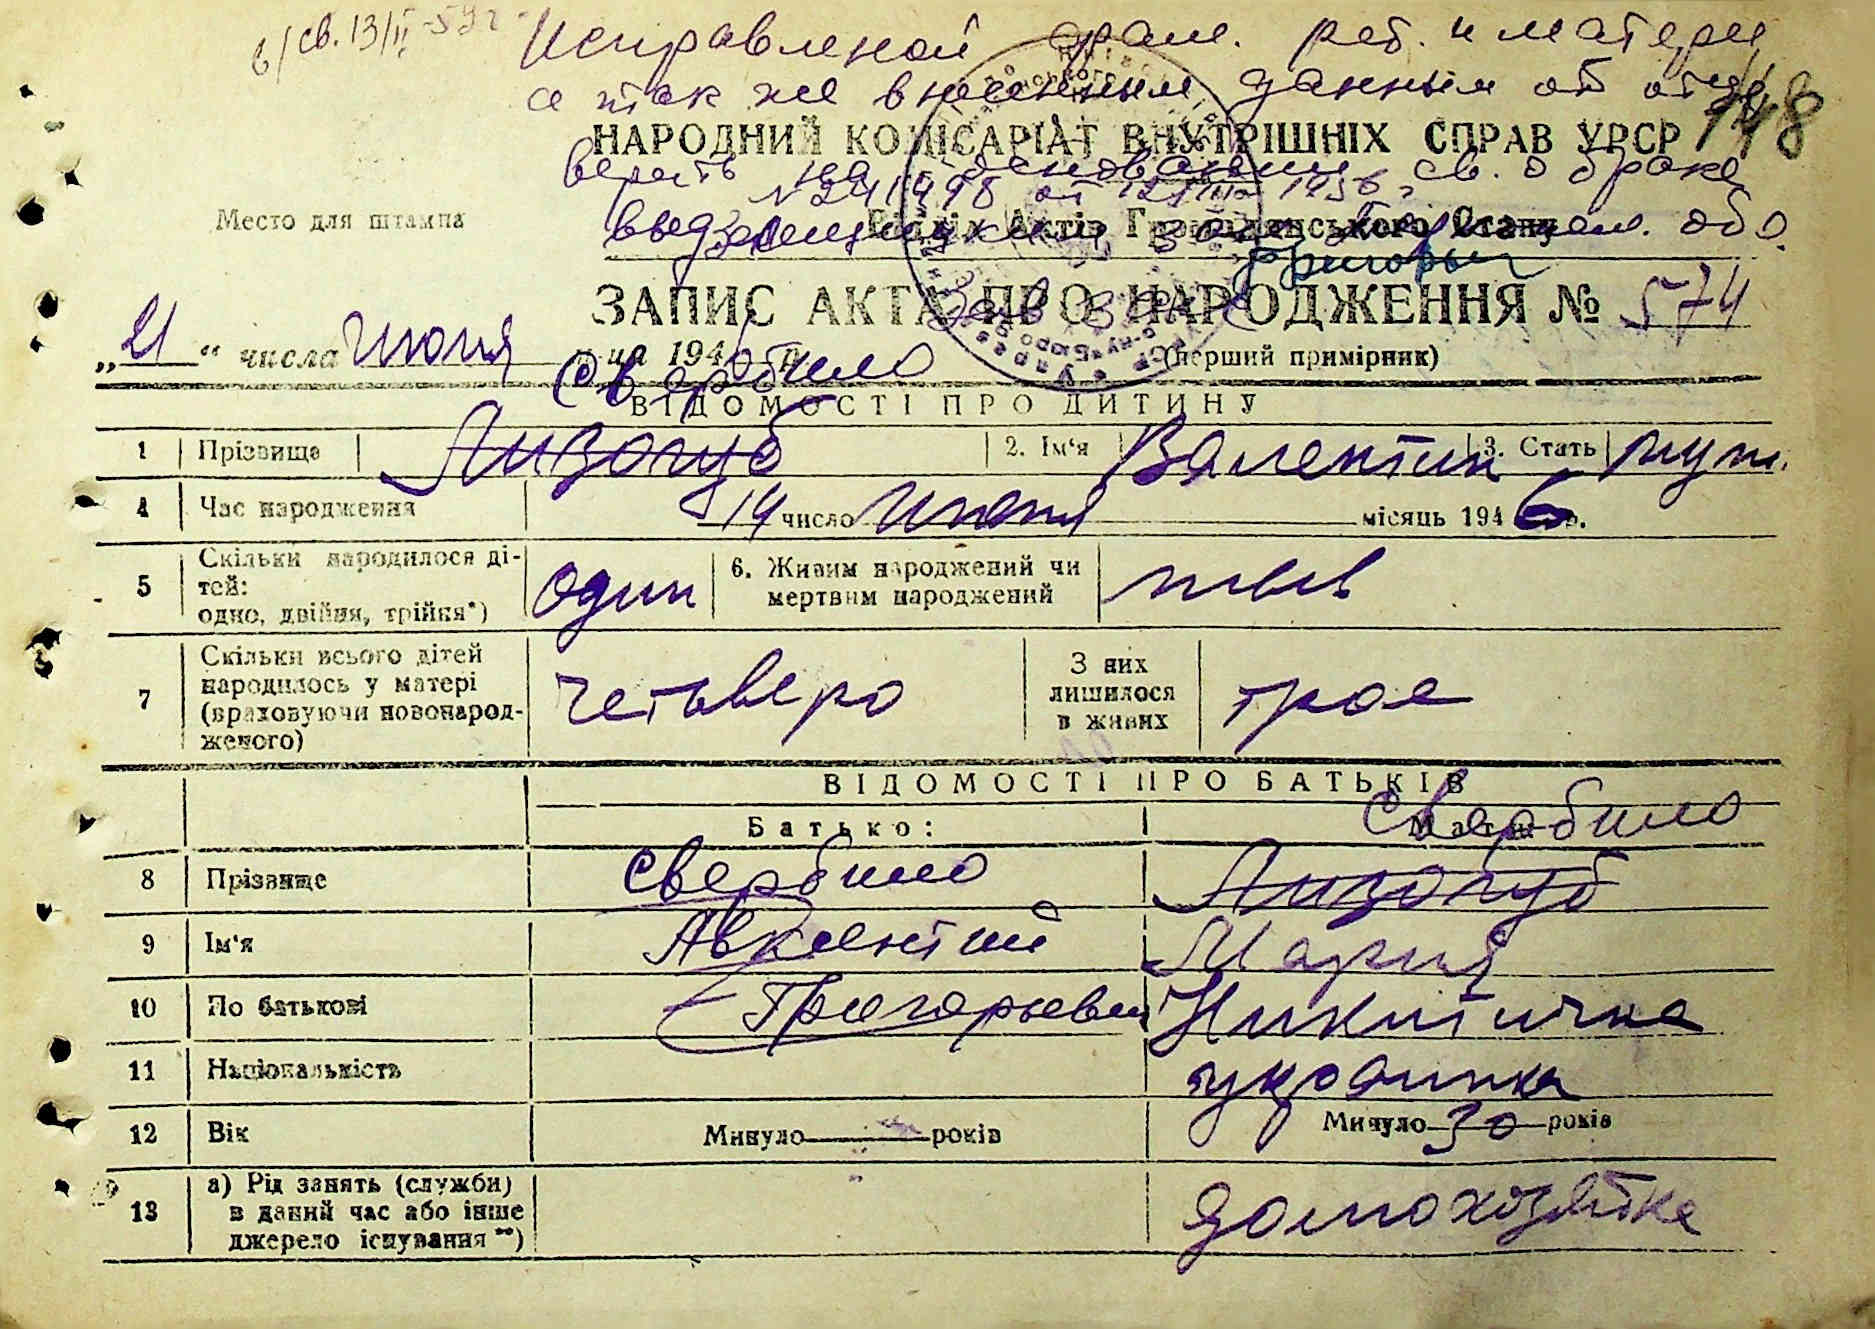 в/св. 13/II-59г
Исправленой фам. реб. и матери
а так же внесенным данным об отце
148
НАРОДНИЙ КОМІСАРІАТ ВНУТРІШНІХ СПРАВ УРСР
верить на основании св. о браке
№ 241498 от 1956
Место для штампа
Відділ Актів Громадянського Стану
обл.
ЗАПИС АКТА ПРО НАРОДЖЕННЯ № 574
„21“ числа Июня м-ця 194 р. (перший примірник)
Свербило
ВІДОМОСТІ ПРО ДИТИНУ
1 Прізвище Лизогуб 2. Ім‘я Валентин 3. Стать муж.
4 Час народження 14 число Июня місяць 1946 р.
5 Скільки народилося ді-
тей:
одно, двійня, трійня*) один 6. Живим народжений чи
мертвим народжений жив
7 Скільки всього дітей
народилось у матері
(враховуючи новонарод-
женого) четверо З них
лишилося
в живих трое
ВІДОМОСТІ ПРО БАТЬКІВ
Батько: Мати: Свербило
8 Прізвище Свербило Лизогуб
9 Ім‘я Авксентий Мария
10 По батькові Григорьевич Никитична
11 Національність украинка
12 Вік Минуло років Минуло 30 років
13 а) Рід занять (служби)
в даний час або інше
джерело існування**) домохозяйка